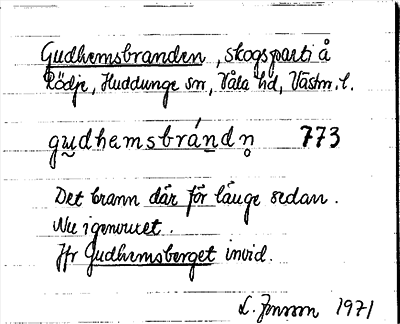 Gudhemsbranden, skogsparti å
Rödje, Huddunge sn, Våla hd, Västm. l.
gu̮dhemsbrándn̥ 773
Det brann där för länge sedan.
Nu igenvuxet.
Jfr Gudhemsberget invid.
L. Jonsson 1971